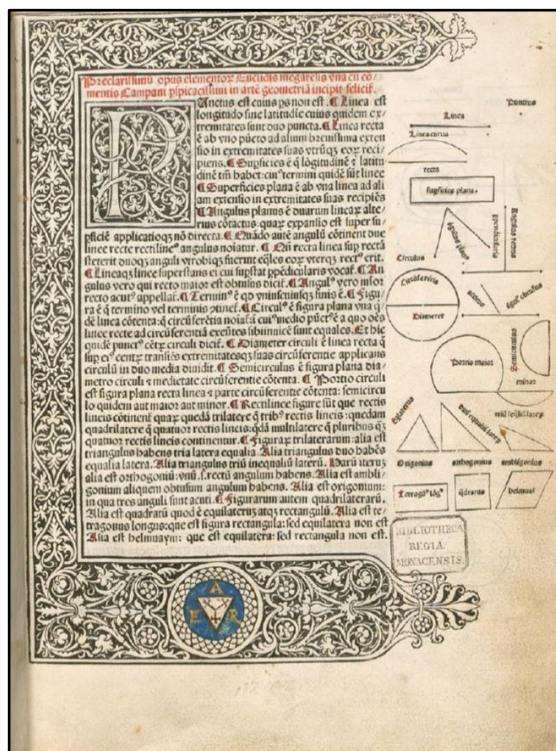 Preclarissimū opus elementorꝝ Euclidis megarēsis vna cū cō/
mentis Campani pspicacissimi in artē geometriā incipit felicit̕.
Punctus est cuius ps non est. ¶ Linea est
longitudo sine latitudie cuius quidem ex/
tremitates sunt duo puncta. ¶ Linea recta
ē ab vno pūcto ad alium breuissima exten
sio in extremitates suas vtrūqꝫ eoꝝ reci
piens. ¶ Supficies ē q̄ lōgitudinē ⁊ latitu
dinē tm̄ habet: cuiꝰ termini quidē sūt linee.
¶ Superficies plana ē ab vna linea ad ali
am extensio in extremitates suas recipiēs
¶ Angulus planus ē duarum linearꝝ alte/
rius cōtactus: quarꝝ expansio est super su/
pficiē applicatioqꝫ nō directa. ¶ Quādo autē angulū cōtinent due
linee recte rectilineꝰ angulus noiatur. ¶ Qn̄ recta linea sup rectā
steterit duoqꝫ anguli vtrobiqꝫ fuerint eq̄les eoꝝ vterqꝫ rectꝰ erit.
¶ Lineaqꝫ linee superstans ei cui supstat ppēdicularis vocat̕. ¶ An
gulus vero qui recto maior est obtusus dicit̕. ¶ Angulꝰ vero mīor
recto acutꝰ appellat̕. ¶ Terminꝰ ē qd̕ vniuscuiusqꝫ finis ē. ¶ Figu/
ra ē q̄ termino vel terminis ꝯtinet̕. ¶ Circulꝰ ē figura plana vna q̄/
dē linea cōtenta: q̄ circūferētia noiat̕: in cuiꝰ medio pūctꝰ ē a quo oēs
linee recte ad circūferētiā exeūtes sibiinuicē sunt equales. Et hic
quidē punctꝰ cētrꝝ circuli dicit̕. ¶ Diameter circuli ē linea recta q̄
sup eiꝰ centrꝝ trāsiēs extremitatesqꝫ suas circūferentie applicans
circulū in duo media diuidit. ¶ Semicirculus ē figura plana dia/
metro circuli ⁊ medietate circūferentie cōtenta. ¶ Portio circuli
est figura plana recta linea ⁊ parte circūferentie cōtenta: semicircu/
lo quidem aut maior aut minor. ¶ Rectilinee figure sūt que rectis
lineis cōtinent̕ quarꝝ quedā trilatere q̄ tribꝰ rectis lineis: quedam
quadrilatere q̄ quatuor rectis lineis: q̄dā multilatere q̄ pluribus qꝫ
quatuor rectis lineis continentur. ¶ Figurarꝝ trilaterarum: alia est
triangulus habens tria latera equalia. Alia triangulus duo habēs
equalia latera. Alia triangulus triū inequaliū laterū. Harū iterum
alia est orthogoniū: vnū .s. rectū angulum habens. Alia est ambli/
gonium aliquem obtusum angulum habens. Alia est oxigonium:
in qua tres anguli sunt acuti. ¶ Figurarum autem quadrilaterarū.
Alia est quadratū quod ē equilaterū atqꝫ rectangulū. Alia est te/
tragonus longus: que est figura rectangula: sed equilatera non est
Alia est helmuaym: que est equilatera: sed rectangula non est.
Linea
Punctus
Linea curua
recta
supficies plana.
Circulus
Circūferētia
Diameter
acutus
Portio maior
Semicirculus
minor
Orthogonius
ambligonius
Tetragonꝰ lōgꝰ
q̄dratus
helmuaī
BIBLIOTHECA
REGIA
MONACENSIS.
A
E R